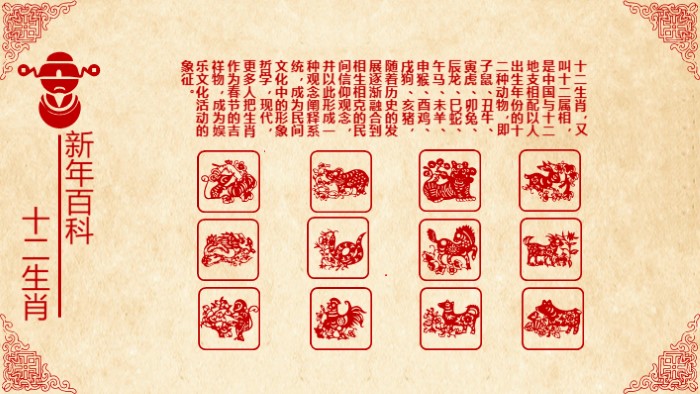 新年百科
十二生肖
十二生肖,又
叫十二属相,
是中国与十二
地支相配以人
出生年份的十
二种动物,即
子鼠、丑牛、
寅虎、卯兔、
辰龙、巳蛇、
午马、未羊、
申猴、酉鸡、
戌狗、亥猪,
随着历史的发
展逐渐融合到
相生相克的民
间信仰观念,
并以此形成一
种观念阐释系
统,成为民间
文化中的形象
哲学,现代,
更多人把生肖
作为春节的吉
祥物,成为娱
乐文化活动的
象征。